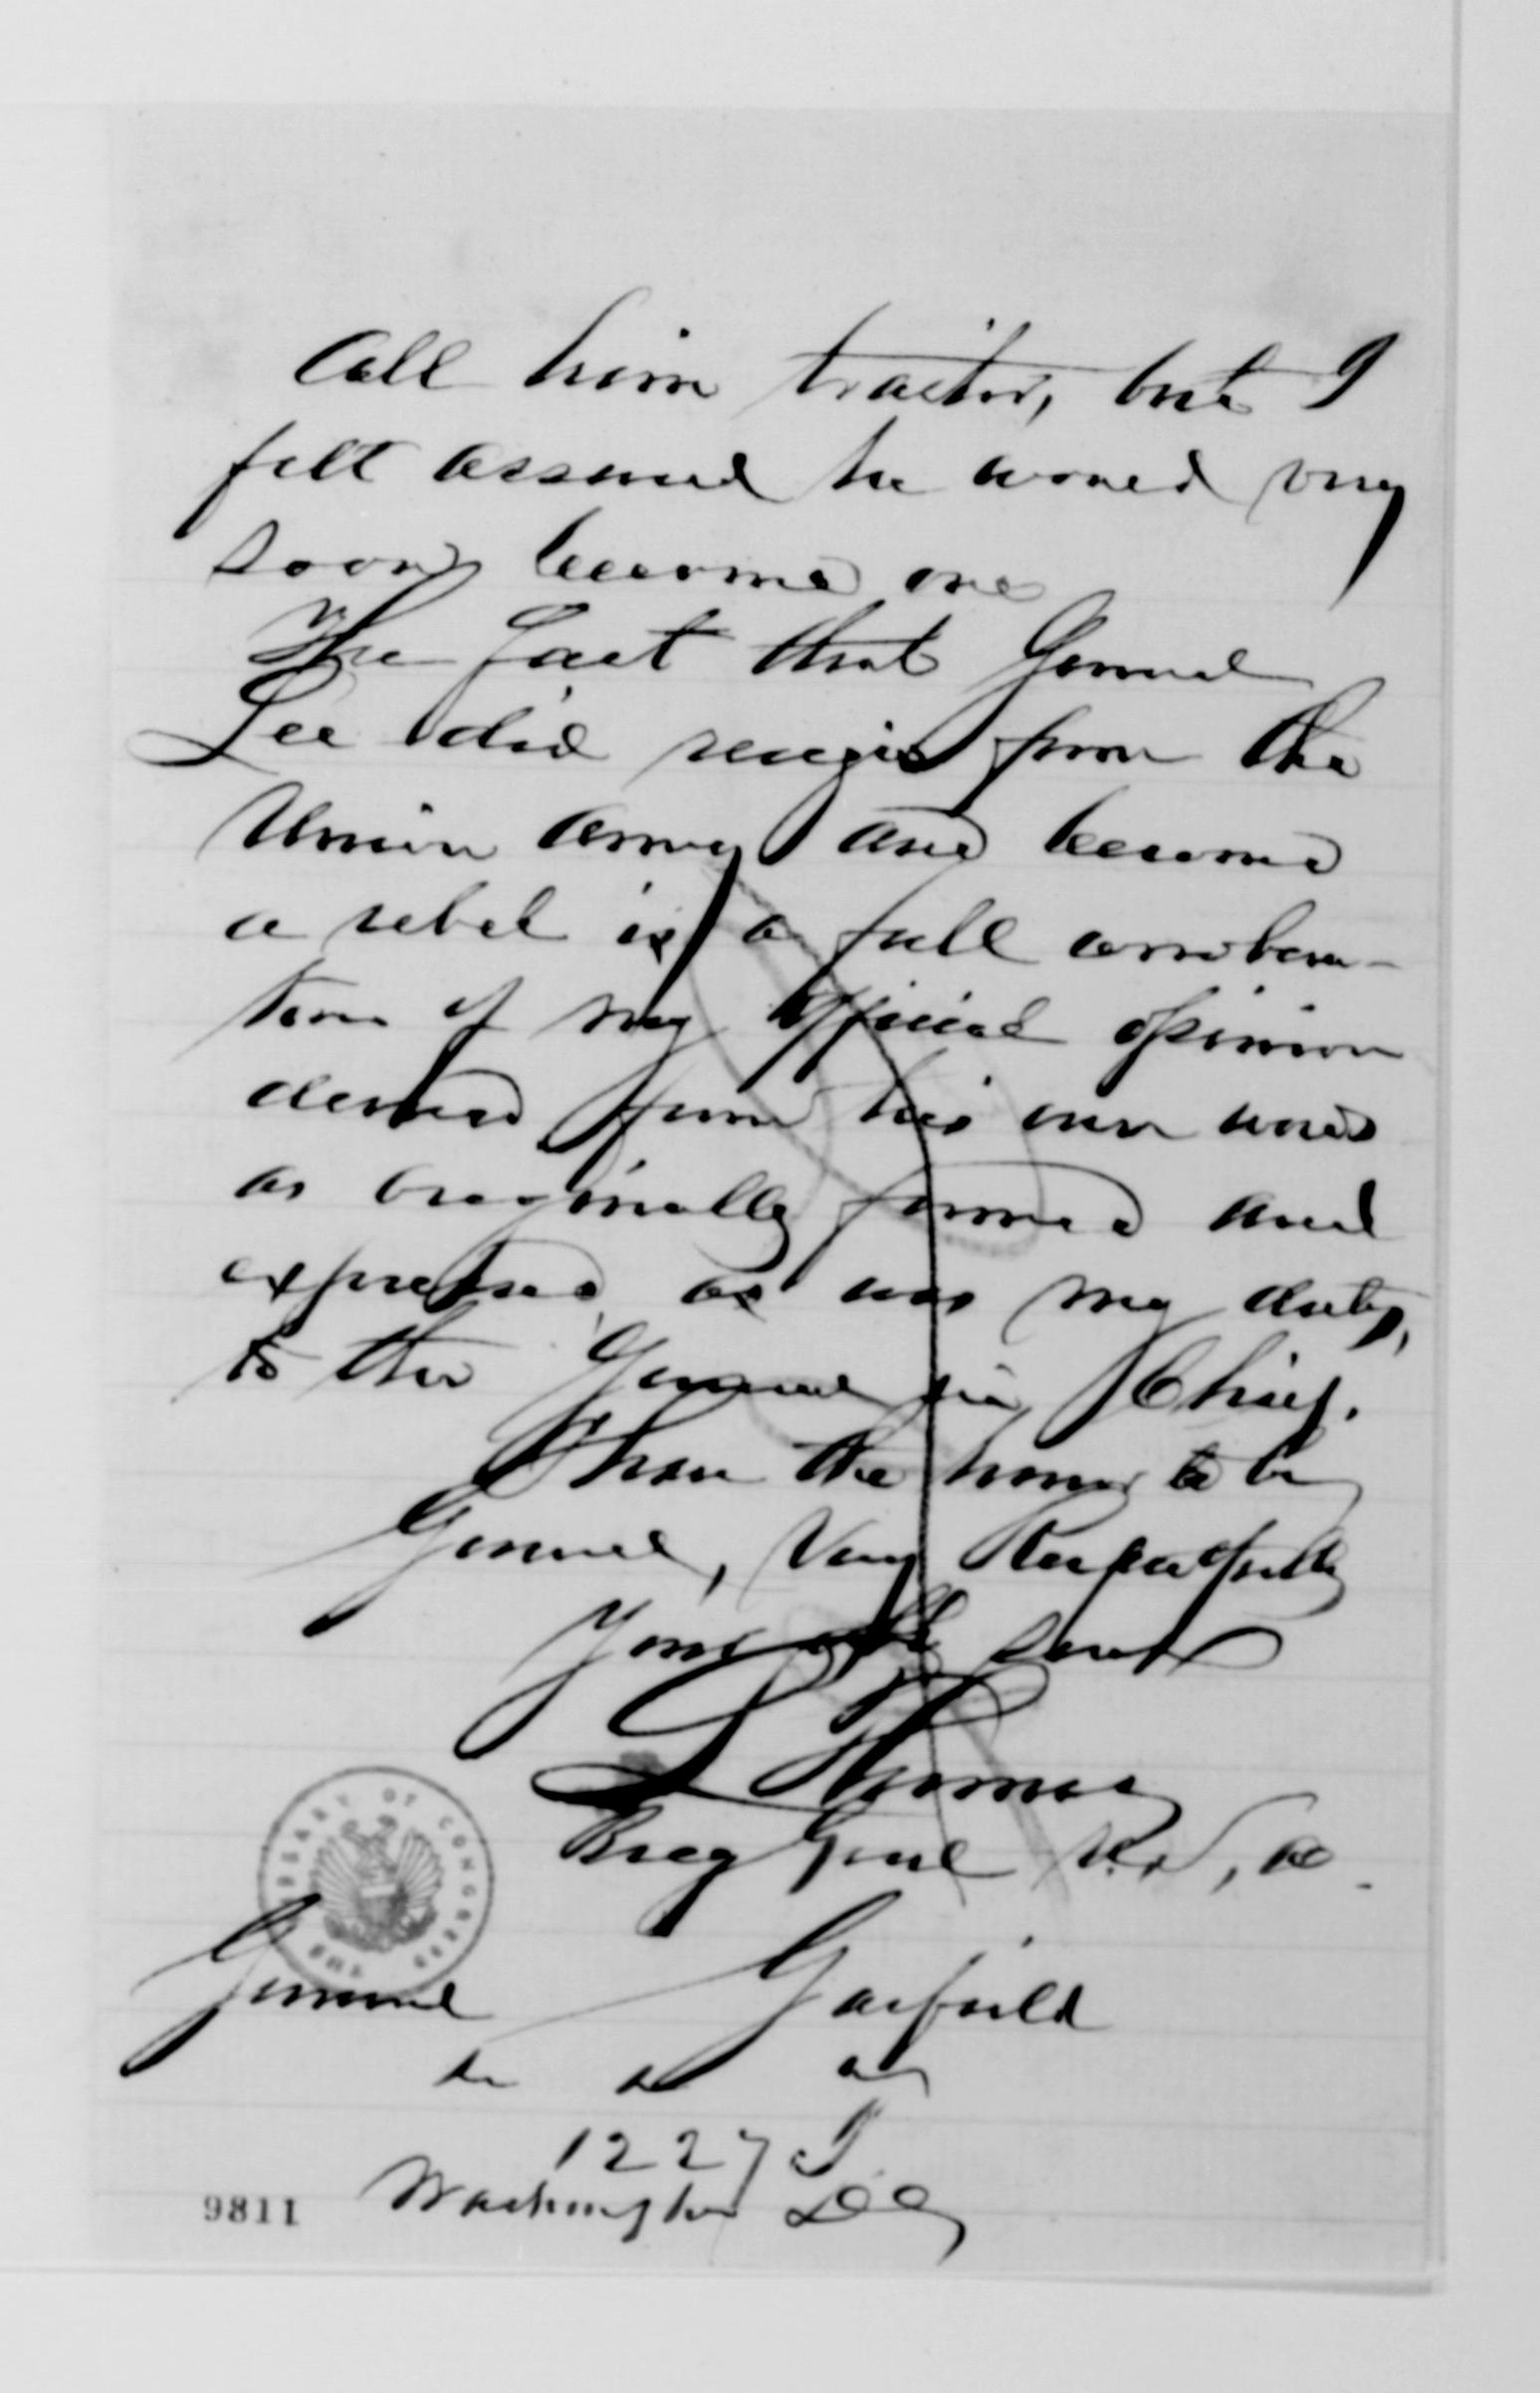 call him traitor, but I
felt assured he would very
soon become one
The fact that General
Lee did resign from the
Union army and become
a rebel is a full corrobora-
tion of my official opinion
derived from his own words
as originally formed and
expressed as was my duty,
to the General in Chief.
I have the honor to be
General, Very Respectfully
Your obt servt
L Thomas
Brig Genl U.S, a
THE LIBRARY OF CONGRESS
General Garfield
1227 I
Washington DC
9811